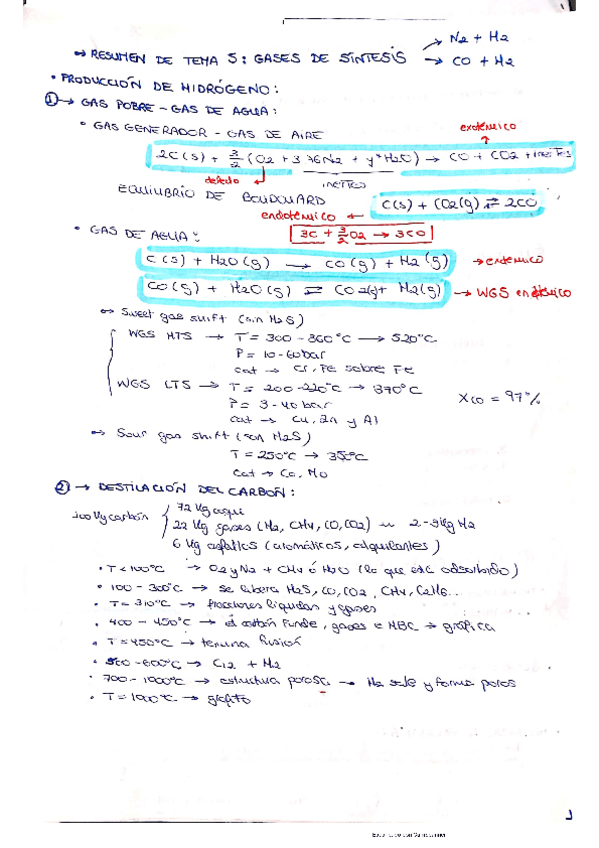 → RESUMEN DE TEMA 5: GASES DE SÍNTESIS → N2 + H2
→ CO + H2
• PRODUCCIÓN DE HIDRÓGENO:
1 → GAS POBRE - GAS DE AGUA:
• GAS GENERADOR - GAS DE AIRE
exotérmico
2C(s) + 3/2 (O2 + 3'76N2 + y*H2O) → CO + CO2 + inertes
defecto
inertes
EQUILIBRIO DE BOUDOUARD
C(s) + CO2(g) ⇌ 2CO
endotérmico ←
3C + 3/2 O2 → 3CO
• GAS DE AGUA:
C(s) + H2O(g) → CO(g) + H2(g) → endotérmico
CO(g) + H2O(g) ⇌ CO2(g) + H2(g) → WGS
→ Sweet gas shift (sin H2S)
WGS HTS → T = 300 - 360°C → 520°C
P = 10-60 bar
cat → Cr, Fe sobre Fe
WGS LTS → T = 200-220°C → 370°C
P = 3-40 bar
XCO = 97%
cat → Cu, Zn y Al
→ Sour gas shift (con H2S)
T = 250°C → 350°C
Cat → Co, Mo
2 → DESTILACIÓN DEL CARBÓN:
100 Kg carbón
72 Kg
22 Kg gases (H2, CH4, CO, CO2) ~ 2-3Kg H2
6 Kg asfaltos (aromáticos, alquitranes)
• T < 100°C → O2 y N2 + CH4 ó H2O (lo que esté adsorbido)
• 100 - 300°C → se libera H2S, CO, CO2, CH4, C2H6...
• T = 310°C → fracciones líquidas y gases
• 400 - 450°C → el carbón funde, gases e HBC → gráfica
• T = 450°C → termina fusión
• 500-600°C → C12 + H2
• 700 - 1000°C → estructura porosa → H2 sale y forma poros
• T = 1000°C → grafito